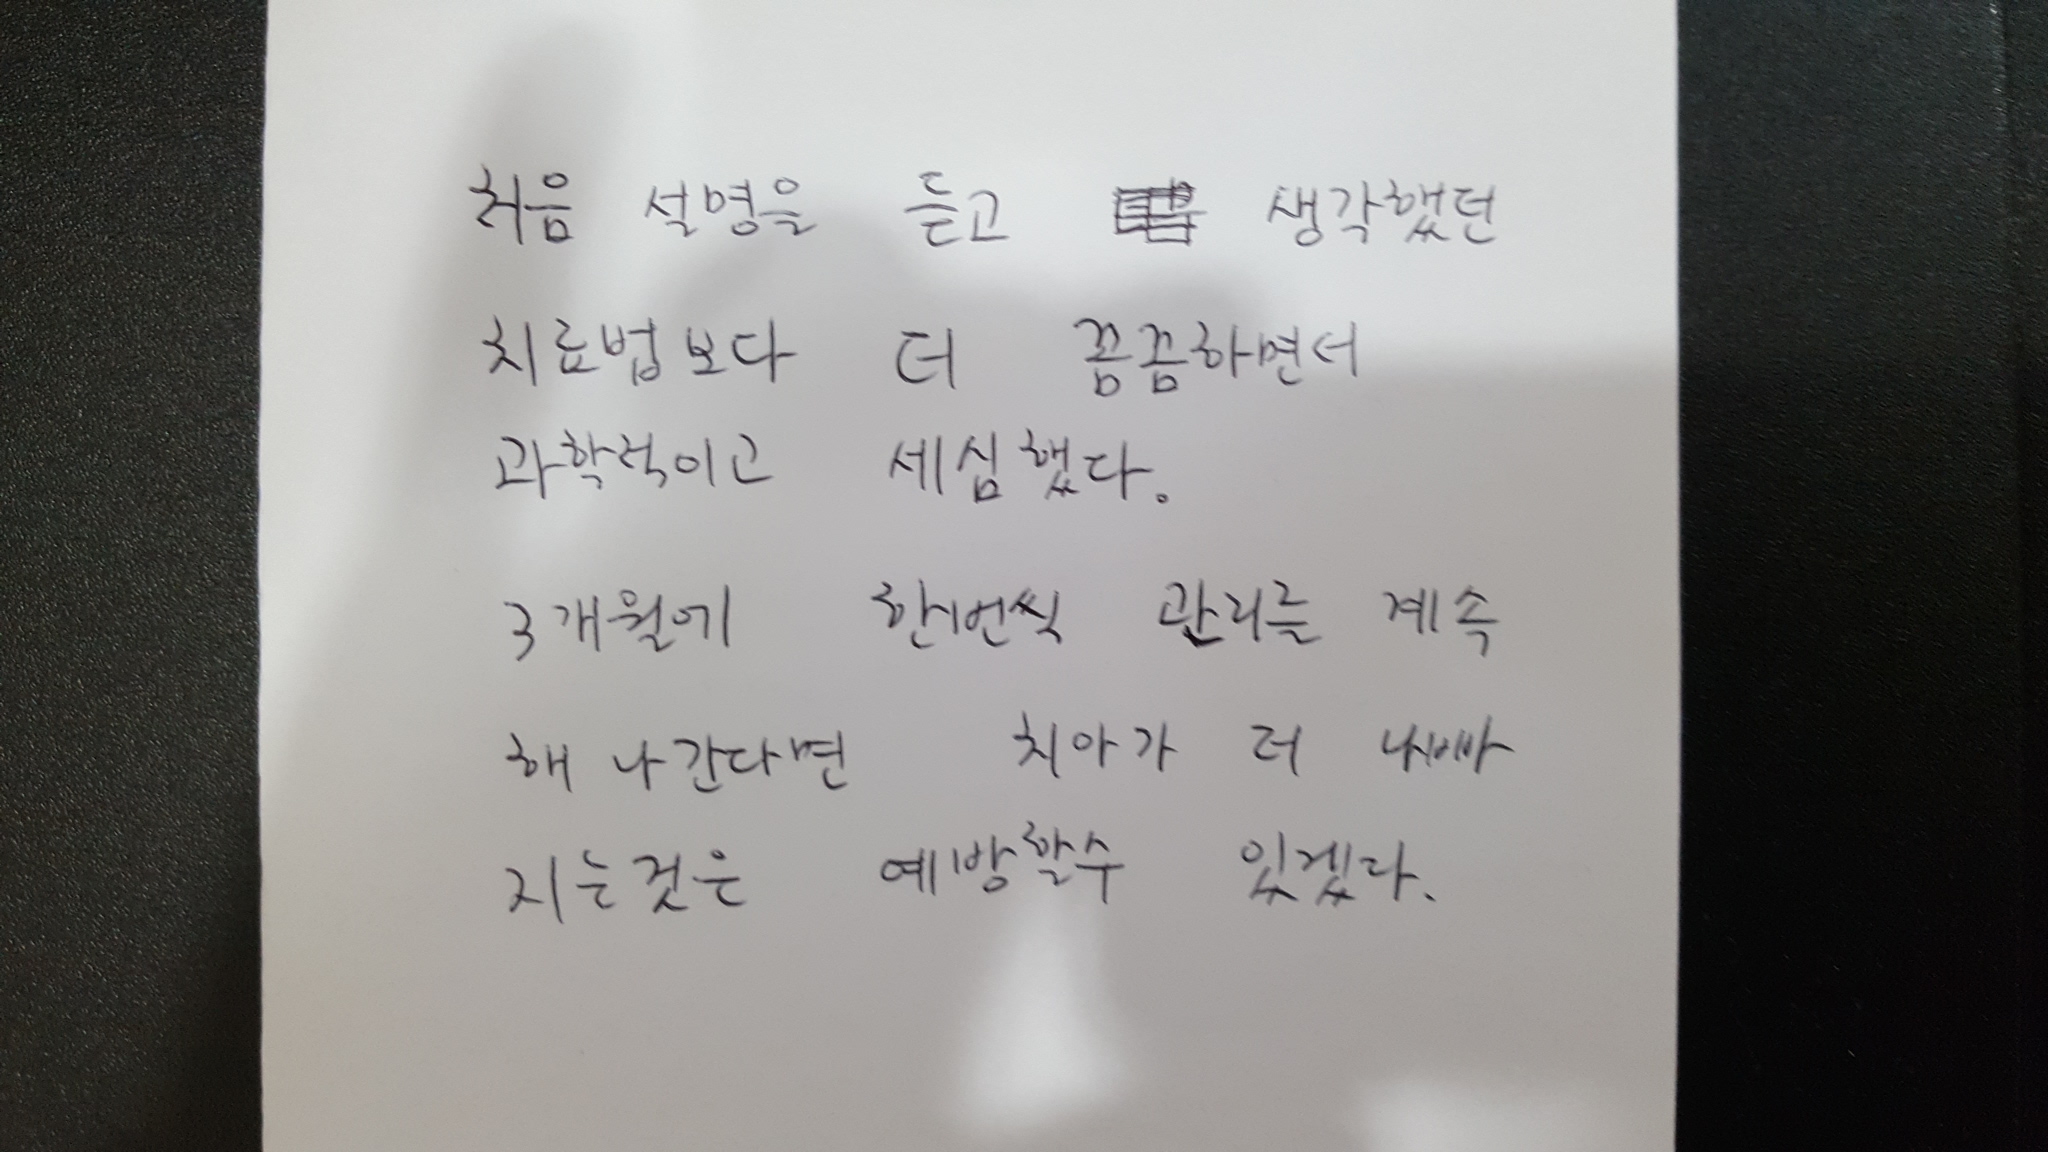 처음 설명을 듣고 생각했던
치료법보다 더 꼼꼼하면서
과학적이고 세심했다.
3개월에 한번씩 관리를 계속
해 나간다면 치아가 더 나빠
지는것은 예방할수 있겠다.